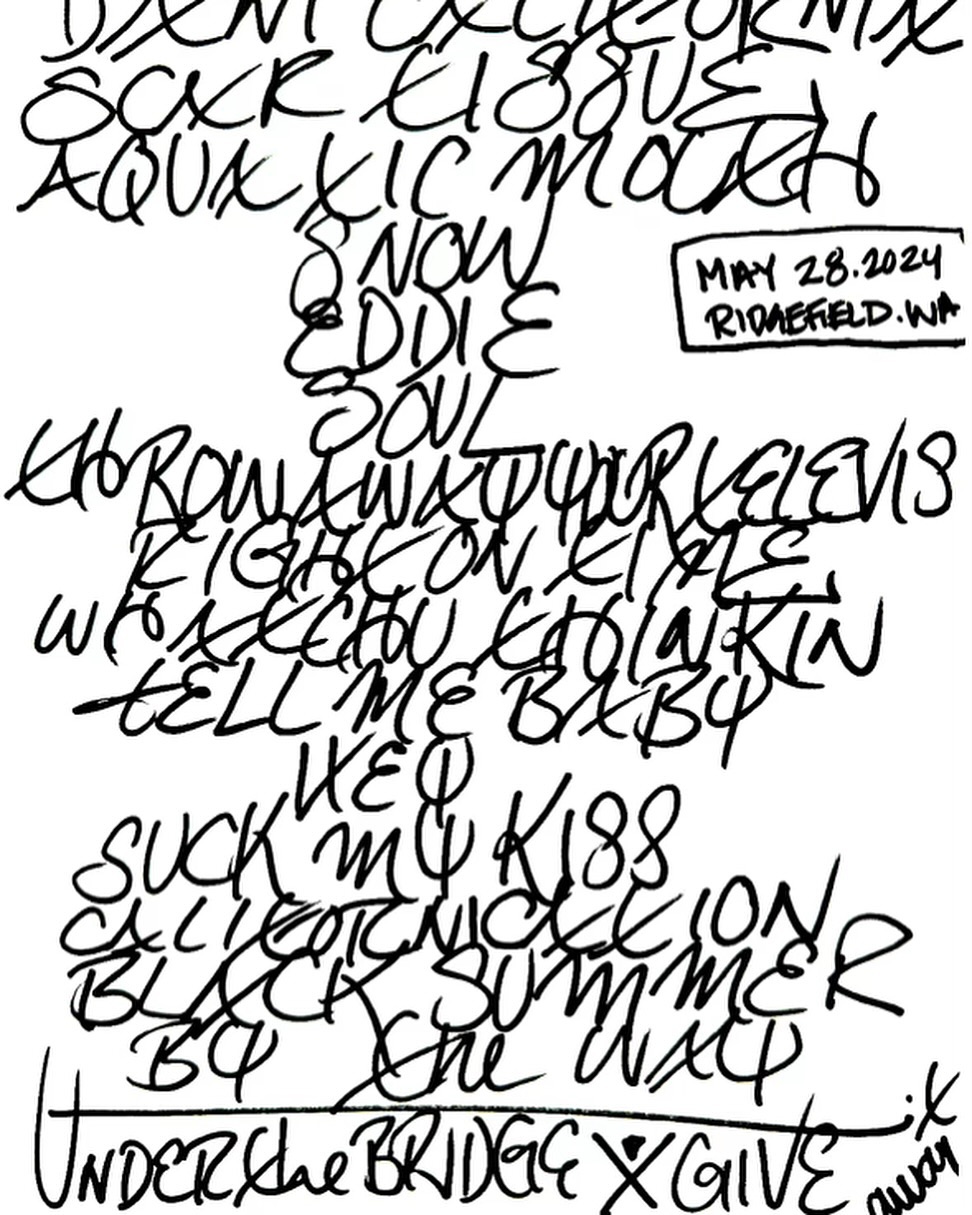 DANI CALIFORNIA
SCAR TISSUE
AQUATIC MOUTH
SNOW
MAY 28.2024
RIDGEFIELD.WA
EDDIE
SOUL
THROW AWAY YOUR TELEVIS
RIGHT ON TIME
WHATCHU THINKIN
TELL ME BABY
HEY
SUCK MY KISS
CALIFORNICATION
BLACK SUMMER
BY the WAY
UNDER the BRIDGE X GIVE it away